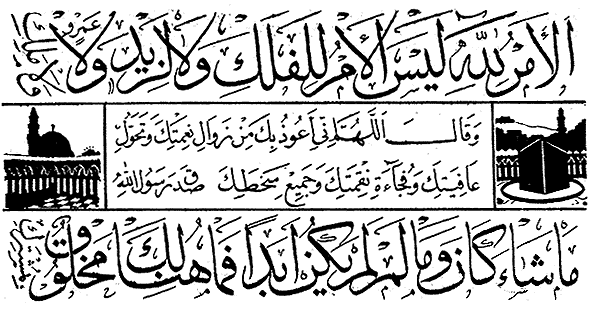 الأمر لله ليس الأمر للفلك ولا لزيد ولا عمرو
وقال اللهم إني أعوذ بك من زوال نعمتك وتحول
عافيتك وفجاءة نقمتك وجميع سخطك صدق رسول الله
ما شاء كان وما لم يكن أبدا فما هنالك مخلوق